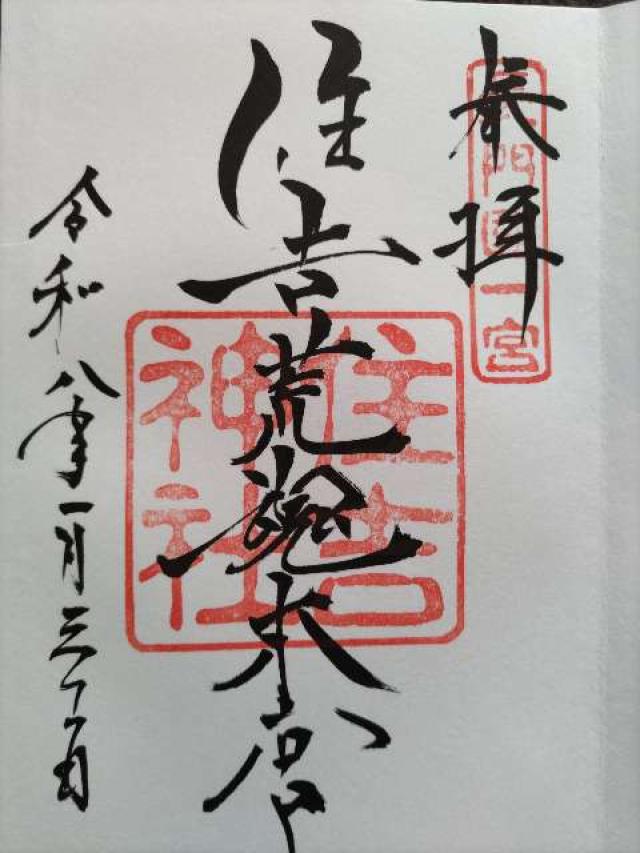 奉拝
長門国一宮
住吉荒魂本宮
住吉
神社
令和八年一月三十一日